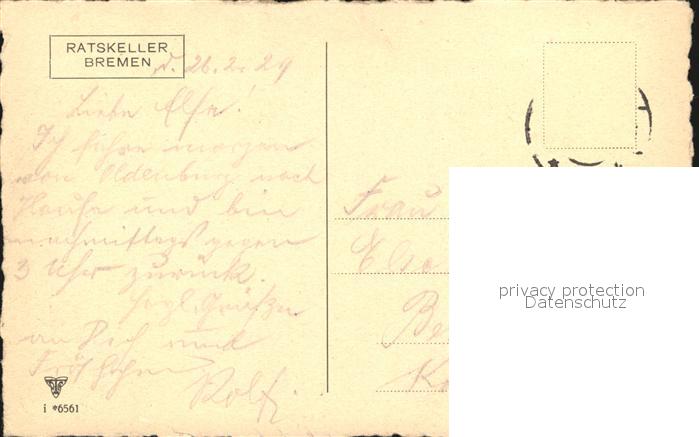 RATSKELLER
BREMEN
d. 26.2.29
Liebe Else!
Ich fahre morgen
von Oldenburg nach
Hause und bin
nachmittags gegen
3 Uhr zurück.
Herzl. Grüße
an Dich und
Rolf.
i *6561
Frau
Else
Be
privacy protection
Datenschutz